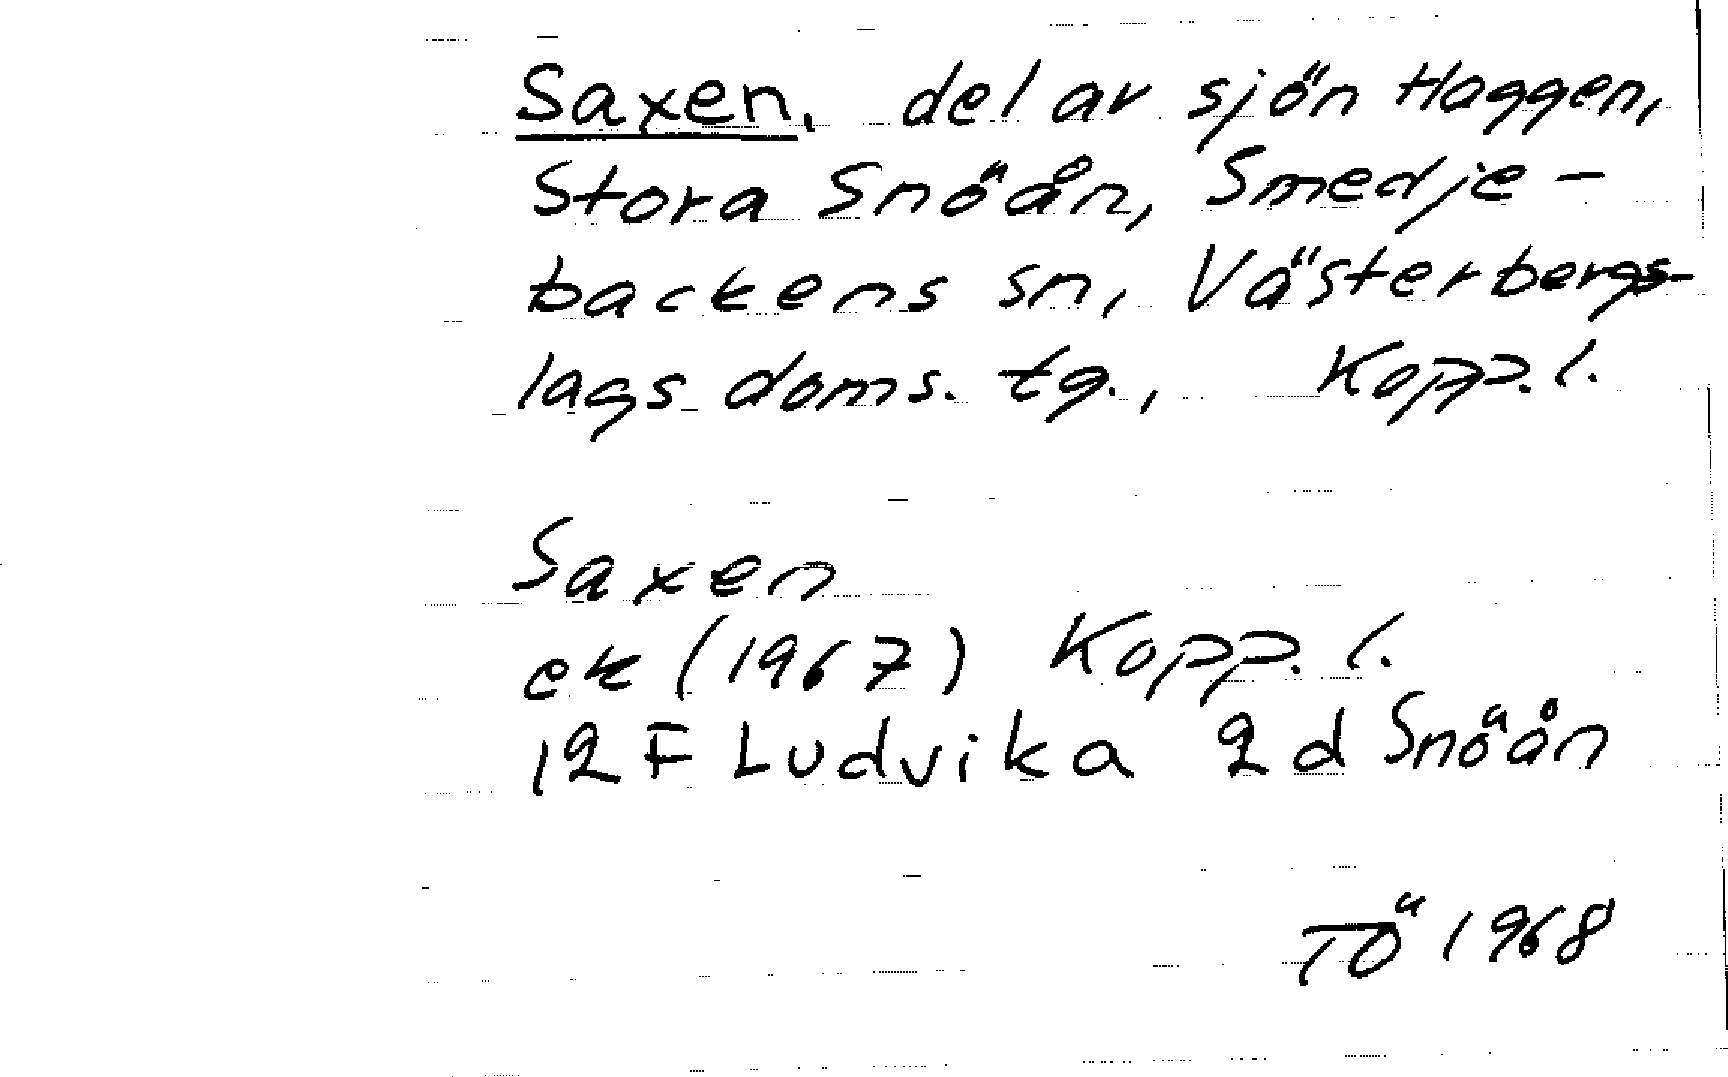 Saxen, del av sjön Haggen,
Stora Snöån, Smedje-
backens sn, Västerbergs-
lags doms. tg., Kopp. l.
Saxen
ek (1967) Kopp. l.
12F Ludvika 2d Snöån
TÖ 1968